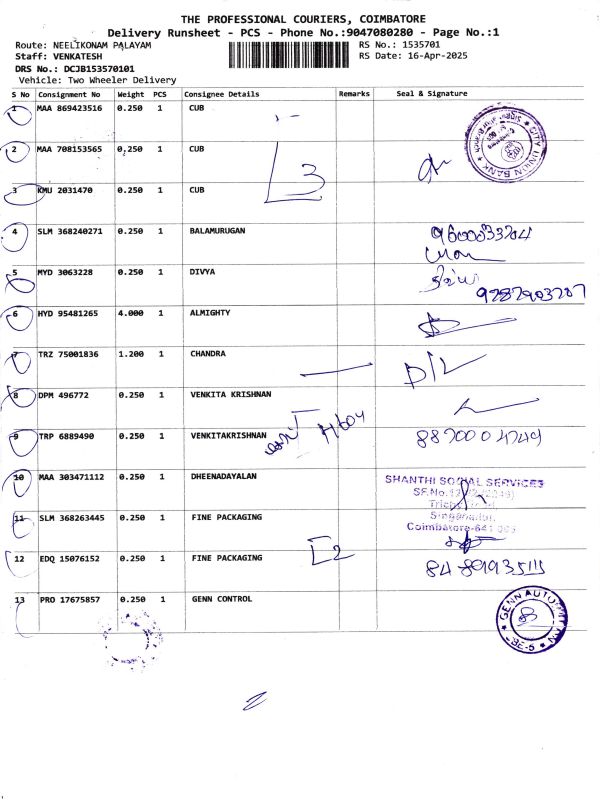 THE PROFESSIONAL COURIERS, COIMBATORE
Delivery Runsheet - PCS - Phone No.:9047080280 - Page No.:1
Route: NEELIKONAM PALAYAM
RS No.: 1535701
Staff: VENKATESH
RS Date: 16-Apr-2025
DRS No.: DCJB153570101
Vehicle: Two Wheeler Delivery
S No Consignment No Weight PCS Consignee Details Remarks Seal & Signature
1 MAA 869423516 0.250 1 CUB
CITY UNION BANK
2 MAA 708153565 0.250 1 CUB
3
3 KMU 2031470 0.250 1 CUB
4 SLM 368240271 0.250 1 BALAMURUGAN
9600033204
5 MYD 3063228 0.250 1 DIVYA
9787903707
6 HYD 95481265 4.000 1 ALMIGHTY
7 TRZ 75001836 1.200 1 CHANDRA
D/L
8 DPM 496772 0.250 1 VENKITA KRISHNAN
H604
9 TRP 6889490 0.250 1 VENKITAKRISHNAN
8870004749
10 MAA 303471112 0.250 1 DHEENADAYALAN
SHANTHI SOCIAL SERVICES
SF.No.
Singanallur,
Coimbatore-641 005
11 SLM 368263445 0.250 1 FINE PACKAGING
2
12 EDQ 15076152 0.250 1 FINE PACKAGING
8489193511
13 PRO 17675857 0.250 1 GENN CONTROL
GENN AUTOMATION
CBE-5